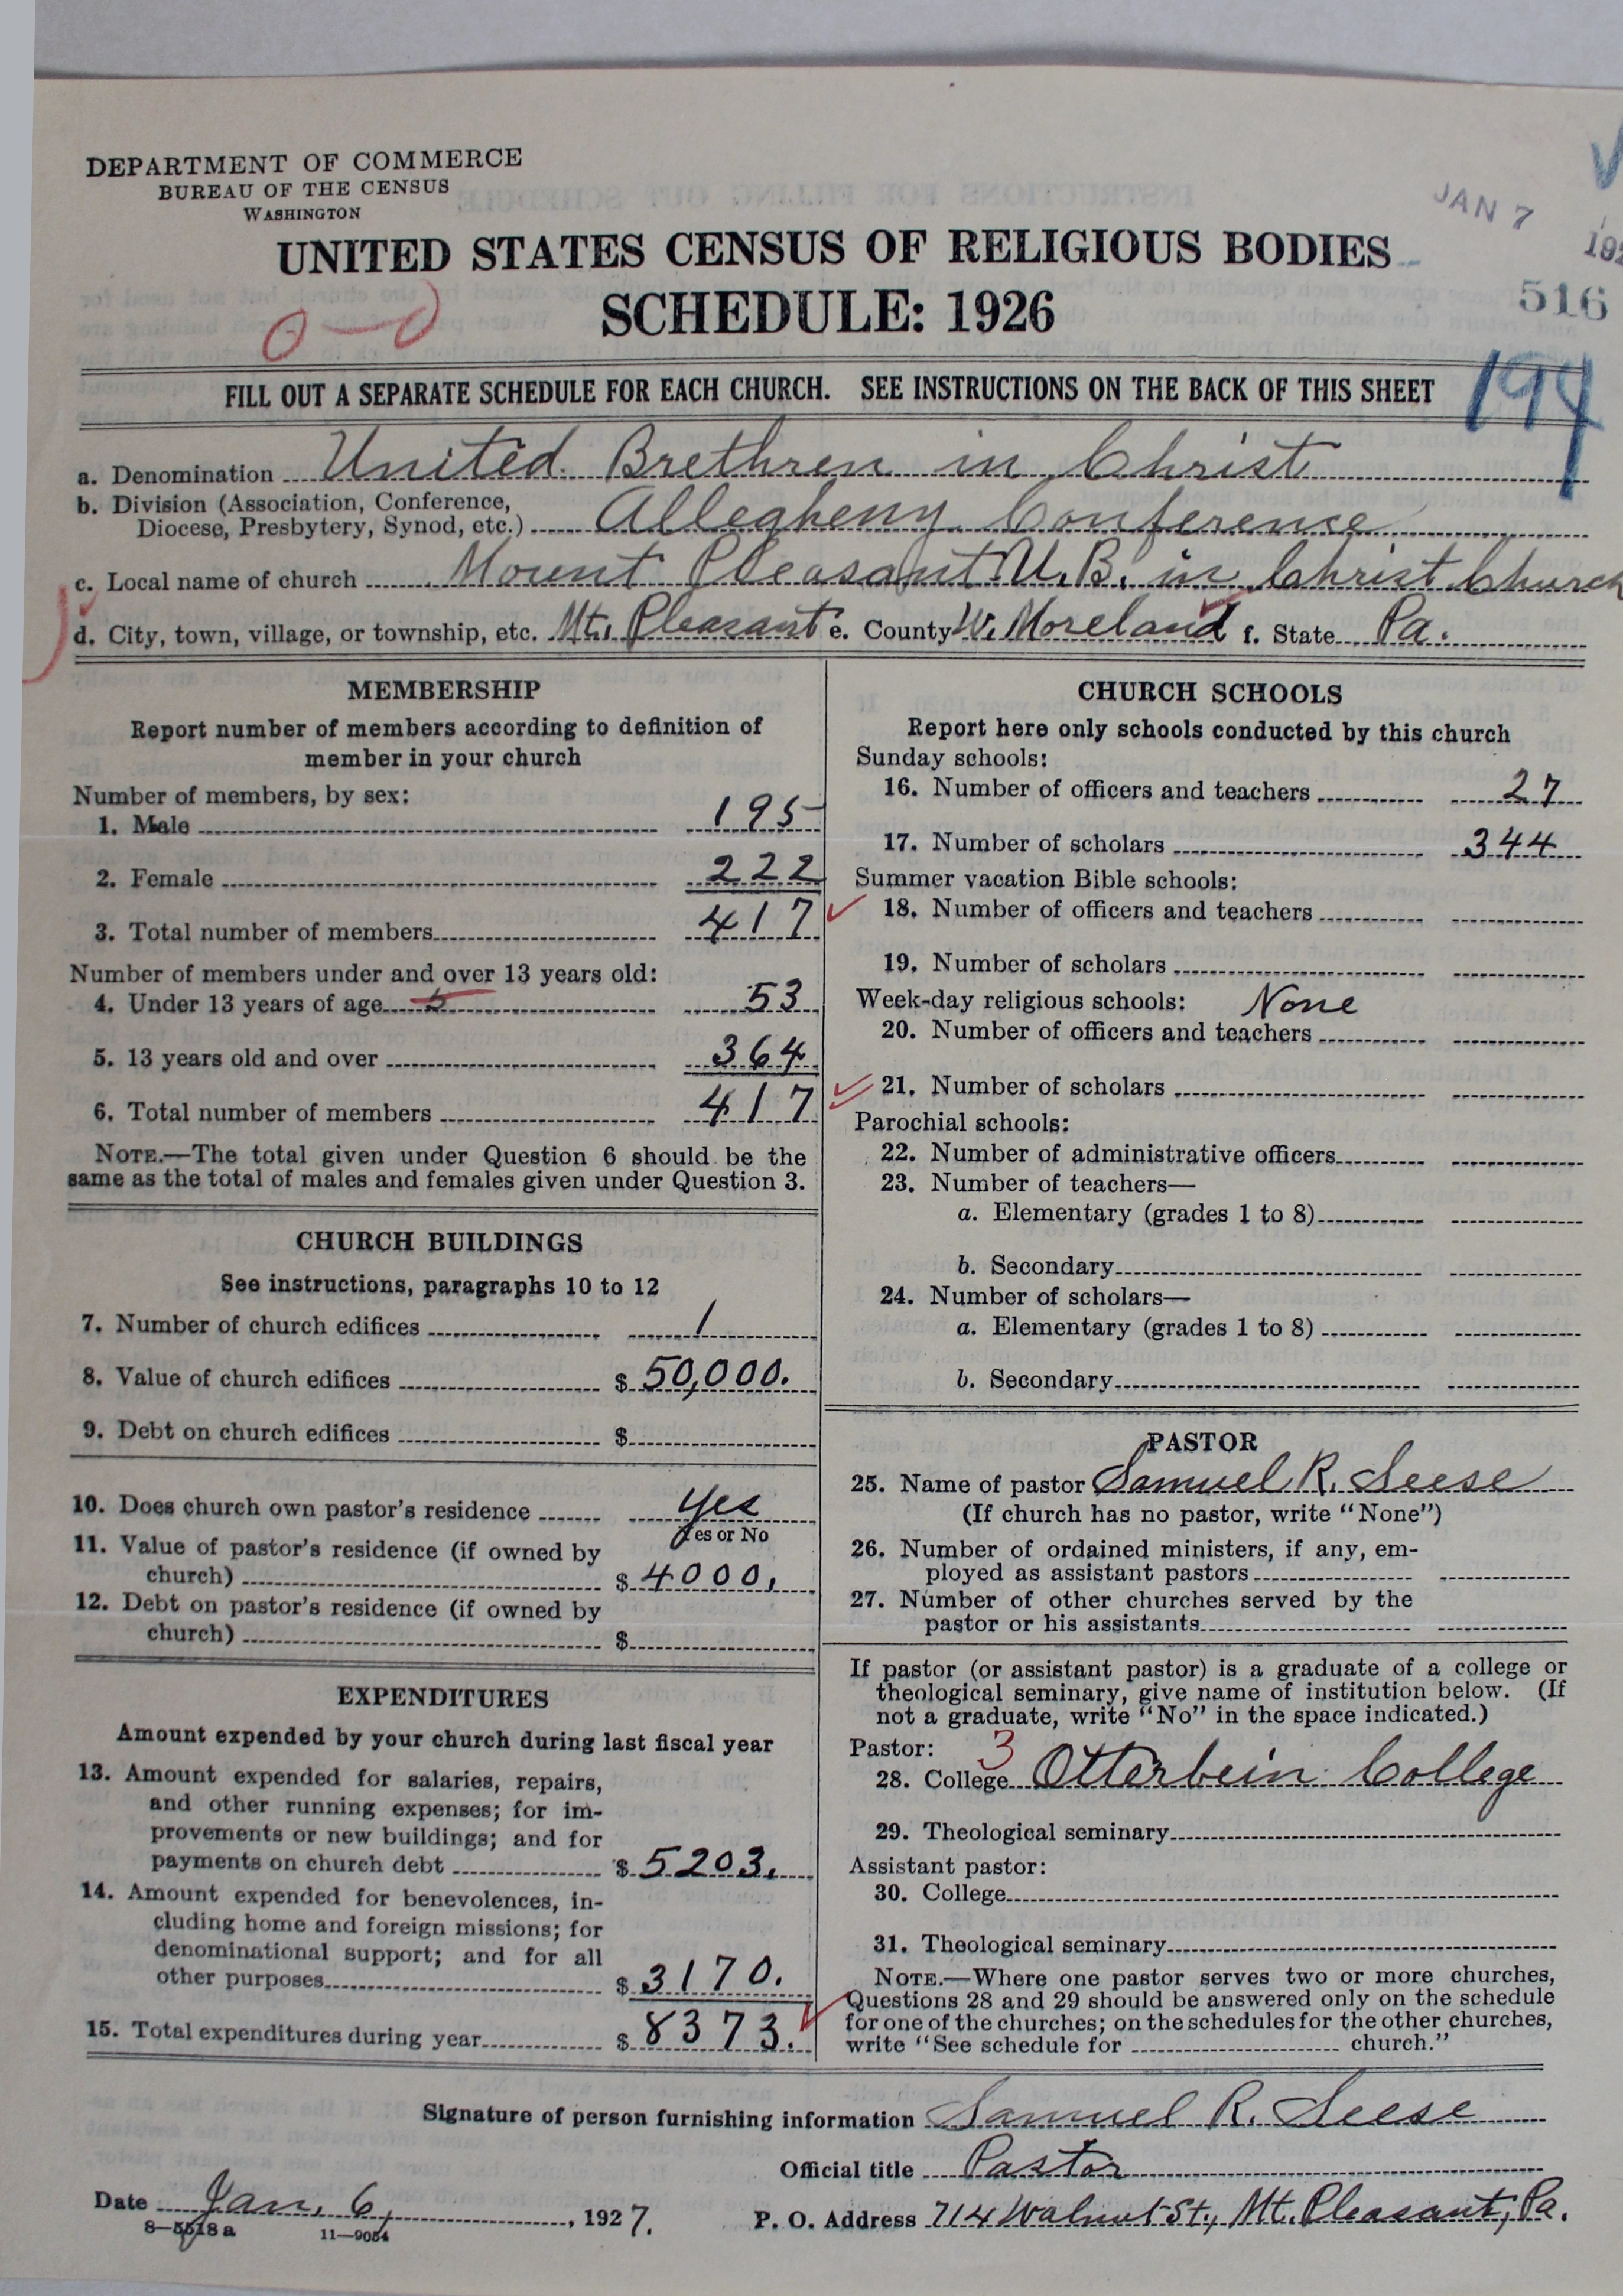 DEPARTMENT OF COMMERCE
BUREAU OF THE CENSUS
WASHINGTON
JAN 7
UNITED STATES CENSUS OF RELIGIOUS BODIES
SCHEDULE: 1926
516
FILL OUT A SEPARATE SCHEDULE FOR EACH CHURCH. SEE INSTRUCTIONS ON THE BACK OF THIS SHEET
194
a. Denomination United Brethren in Christ
b. Division (Association, Conference,
Diocese, Presbytery, Synod, etc.) Allegheny Conference
c. Local name of church Mount Pleasant U.B. in Christ Church
d. City, town, village, or township, etc. Mt. Pleasant e. County W. Moreland f. State Pa.
MEMBERSHIP
Report number of members according to definition of
member in your church
Number of members, by sex:
1. Male 195
2. Female 222
3. Total number of members 417
Number of members under and over 13 years old:
4. Under 13 years of age 5 53
5. 13 years old and over 364
6. Total number of members 417
NOTE.—The total given under Question 6 should be the
same as the total of males and females given under Question 3.
CHURCH BUILDINGS
See instructions, paragraphs 10 to 12
7. Number of church edifices 1
8. Value of church edifices $ 50,000.
9. Debt on church edifices $
10. Does church own pastor's residence yes
Yes or No
11. Value of pastor's residence (if owned by
church) $ 4000.
12. Debt on pastor's residence (if owned by
church) $
EXPENDITURES
Amount expended by your church during last fiscal year
13. Amount expended for salaries, repairs,
and other running expenses; for im-
provements or new buildings; and for
payments on church debt $ 5203.
14. Amount expended for benevolences, in-
cluding home and foreign missions; for
denominational support; and for all
other purposes $ 3170.
15. Total expenditures during year $ 8373.
CHURCH SCHOOLS
Report here only schools conducted by this church
Sunday schools:
16. Number of officers and teachers 27
17. Number of scholars 344
Summer vacation Bible schools:
18. Number of officers and teachers
19. Number of scholars
Week-day religious schools: None
20. Number of officers and teachers
21. Number of scholars
Parochial schools:
22. Number of administrative officers
23. Number of teachers—
a. Elementary (grades 1 to 8)
b. Secondary
24. Number of scholars—
a. Elementary (grades 1 to 8)
b. Secondary
PASTOR
25. Name of pastor Samuel R. Seese
(If church has no pastor, write "None")
26. Number of ordained ministers, if any, em-
ployed as assistant pastors
27. Number of other churches served by the
pastor or his assistants
If pastor (or assistant pastor) is a graduate of a college or
theological seminary, give name of institution below. (If
not a graduate, write "No" in the space indicated.)
Pastor: 3
28. College Otterbein College
29. Theological seminary
Assistant pastor:
30. College
31. Theological seminary
NOTE.—Where one pastor serves two or more churches,
Questions 28 and 29 should be answered only on the schedule
for one of the churches; on the schedules for the other churches,
write "See schedule for church."
Signature of person furnishing information Samuel R. Seese
Official title Pastor
Date Jan. 6, 1927.
P. O. Address 714 Walnut St., Mt. Pleasant, Pa.
8—5518a 11—9054